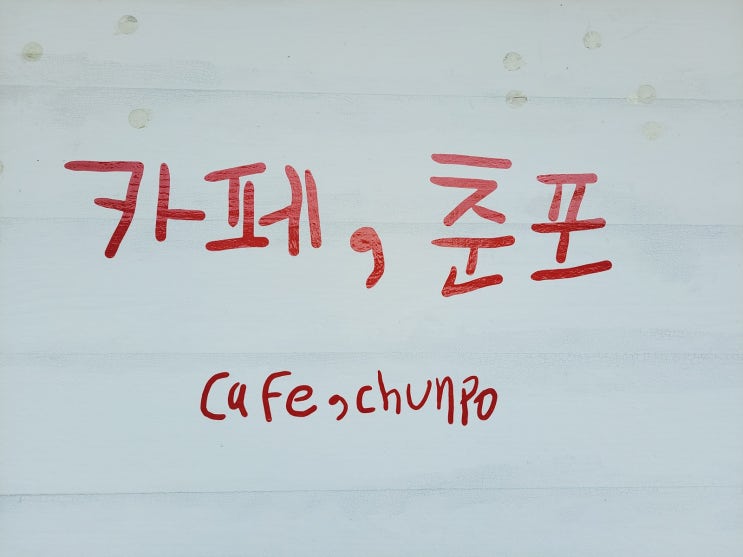 카페, 춘포
Cafe, chunpo